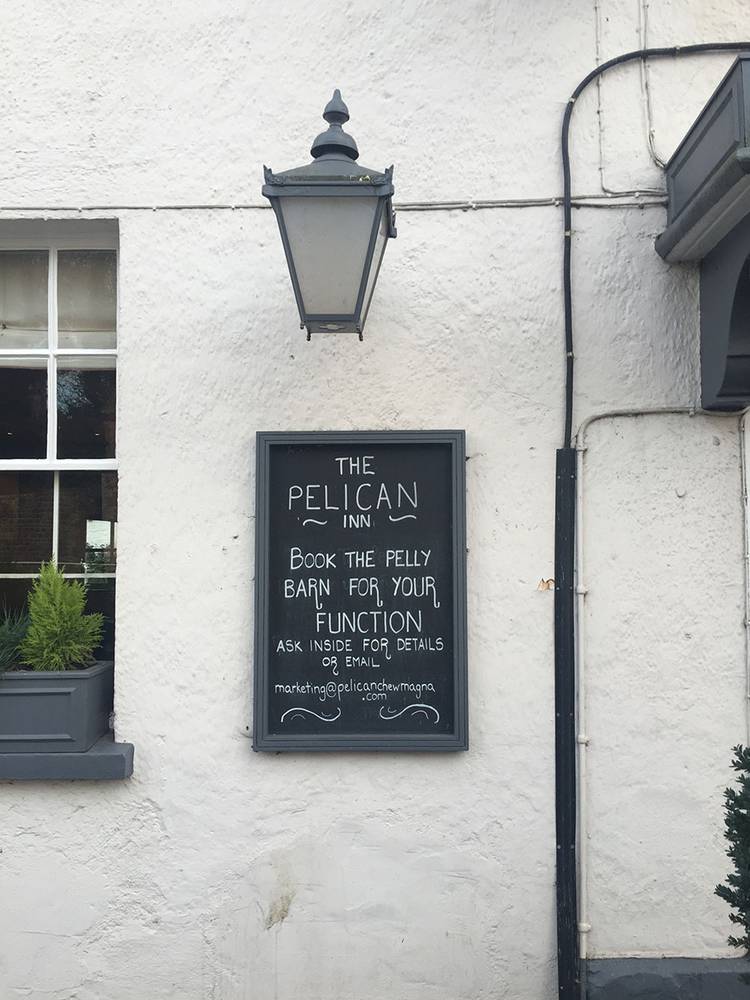 THE
PELICAN
INN
BOOK THE PELLY
BARN FOR YOUR
FUNCTION
ASK INSIDE FOR DETAILS
OR EMAIL
marketing@pelicanchewmagna
.com